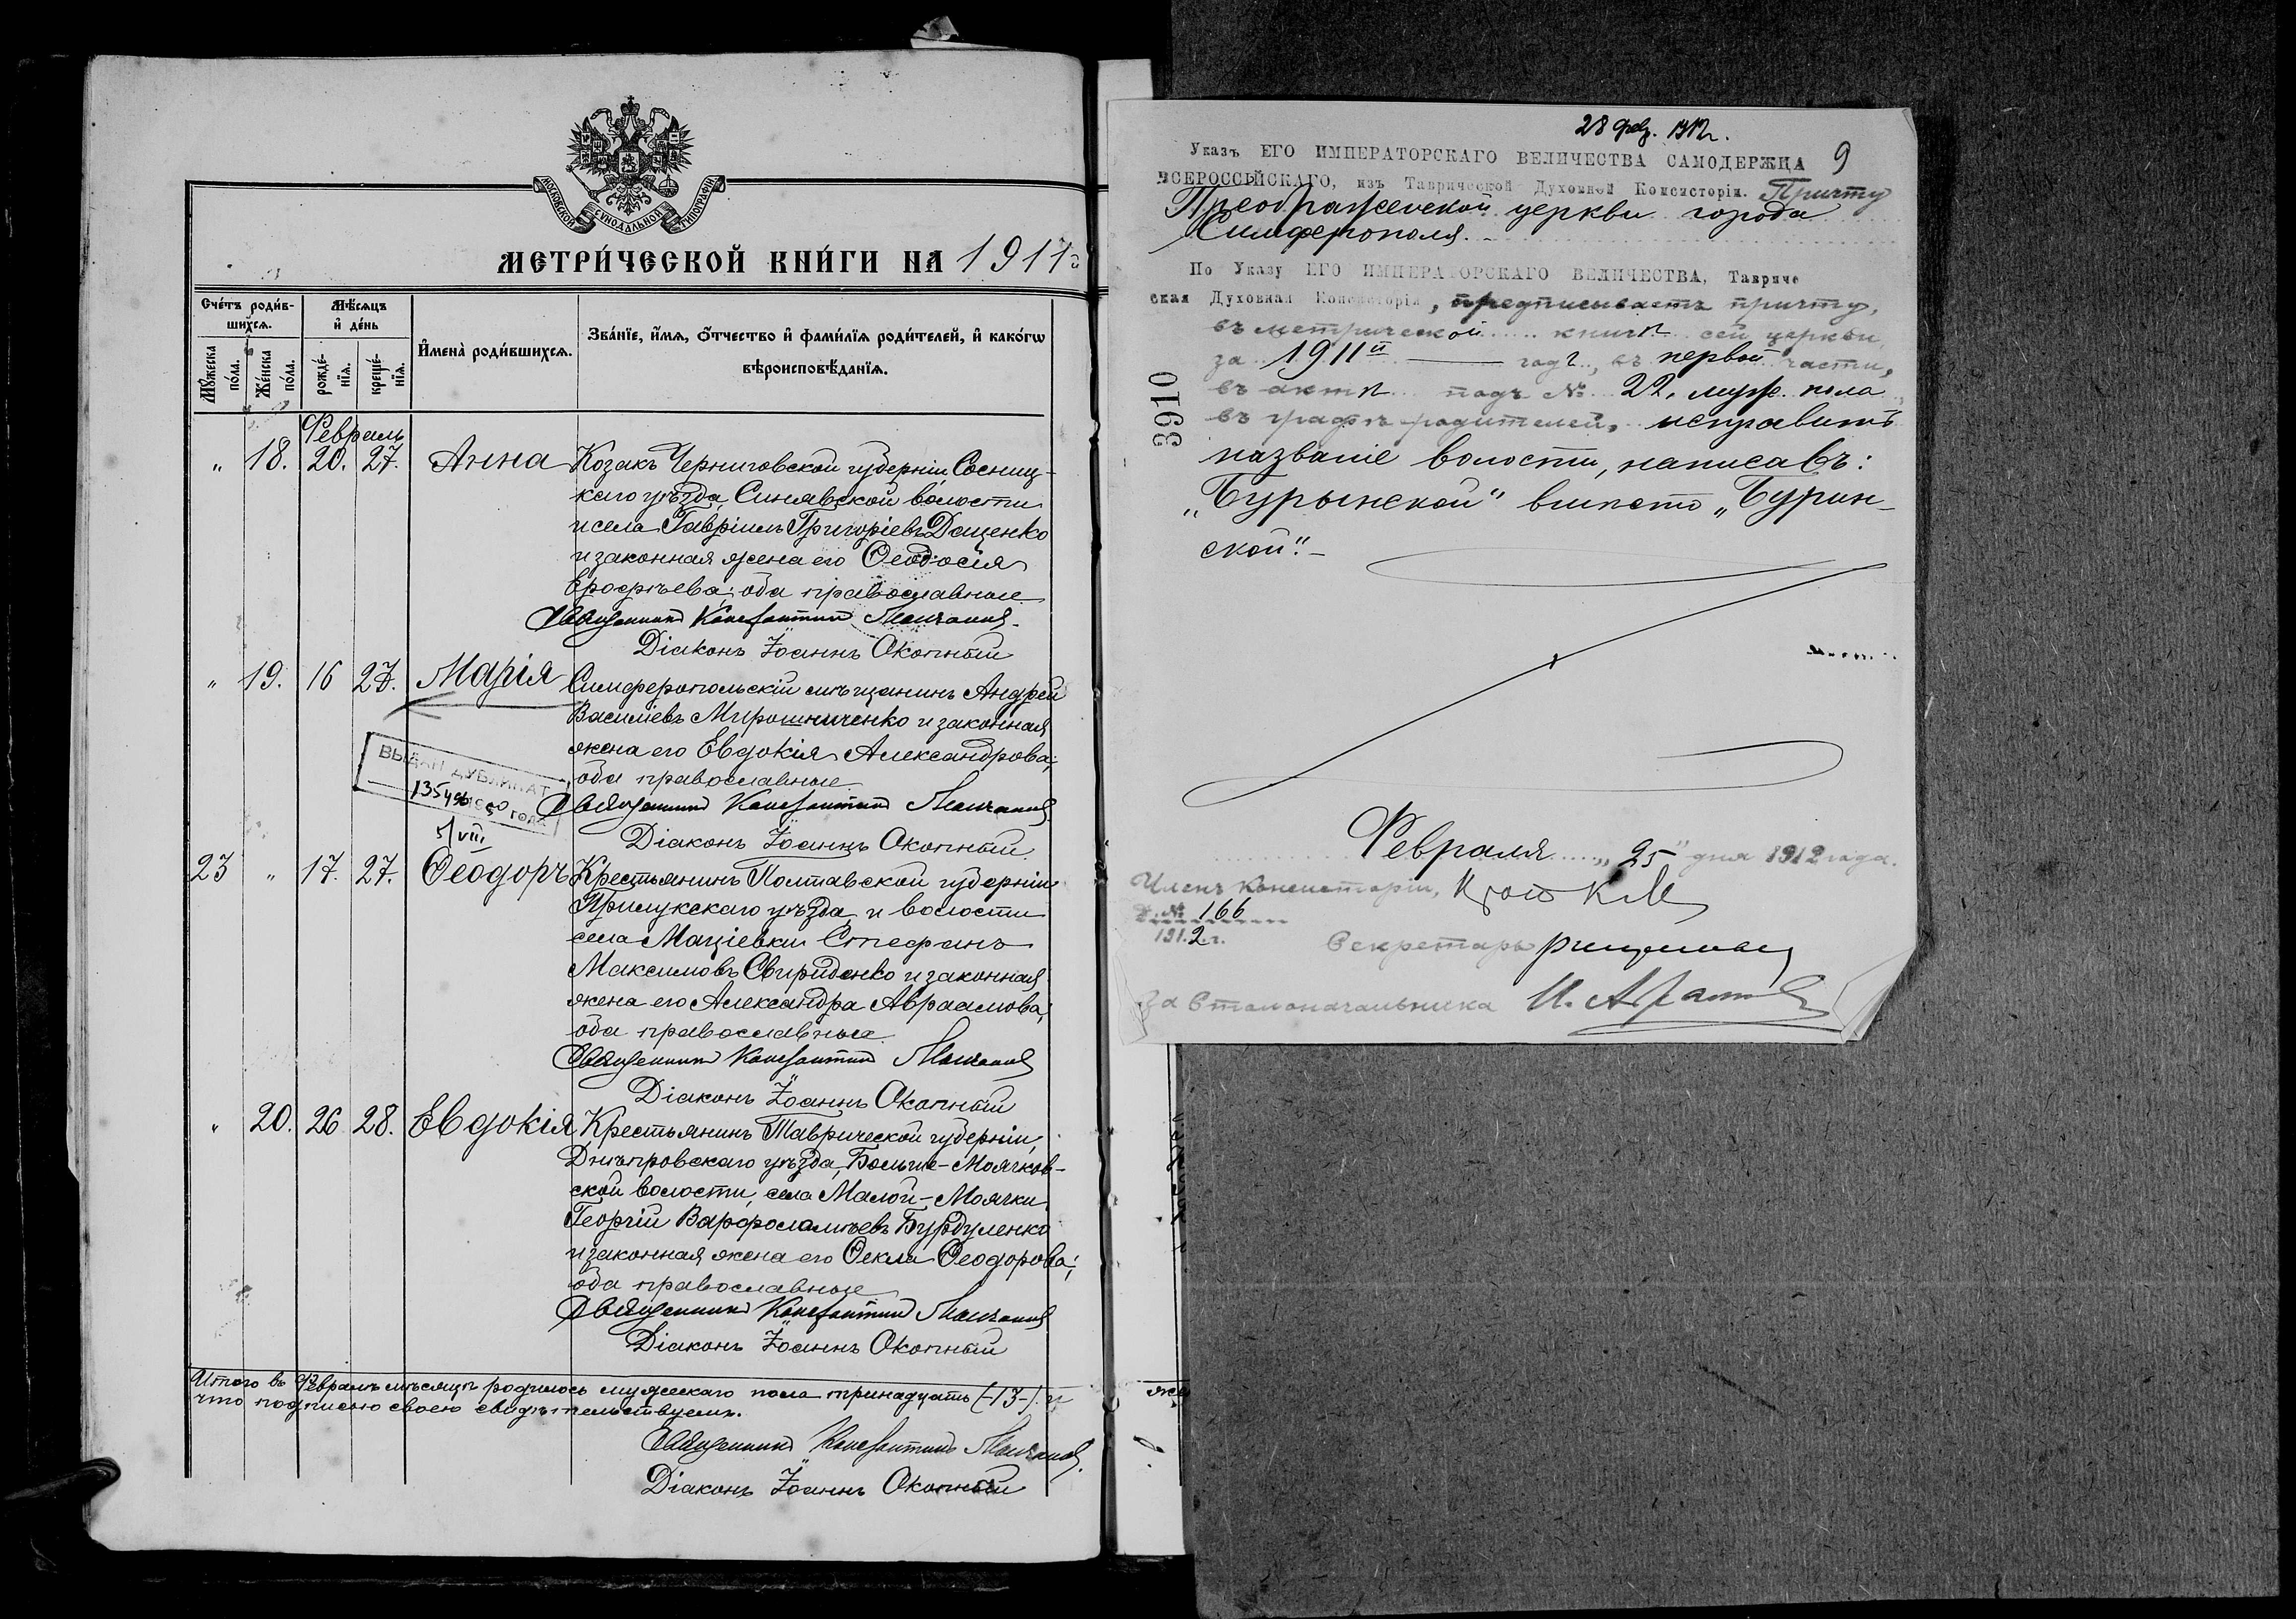 МОСКОВСКОЙ СѴНОДАЛЬНОЙ ТИПОГРАФІИ
МЕТРИ́ЧЕСКОЙ КНИ́ГИ НА 1911 г
Сче́тъ роди́в-
шихсѧ.
Мꙋ́жеска по́ла.
Же́нска по́ла.
Мѣ́сѧцъ
и҆ де́нь
рожде́-
нїѧ.
креще́-
нїѧ.
И҆мена̀ роди́вшихсѧ.
Зва́нїе, и҆́мѧ, ѻ҆́тчество и҆ фами́лїѧ роди́телей, и҆ како́гѡ
вѣроисповѣ́данїѧ.
Февраль
" 18. 20. 27. Анна
Козакъ Черниговской губерніи, Сосниц-
каго уѣзда, Синявской волости
и села Гавріилъ Григоріевъ Даценко
и законная жена его Ѳеодосія
Ерофѣева; оба православные
Священникъ Константинъ
Діаконъ Іоаннъ Окопный
" 19. 16 27. Марія
Симферопольскій мѣщанинъ Андрей
Василіевъ Мирошниченко и законная
жена его Евдокія Александрова;
оба православные
ВЫДАН ДУБЛИКАТ
1950 года
5/VIII
Священникъ Константинъ
Діаконъ Іоаннъ Окопный
23 " 17. 27. Ѳеодоръ
Крестьянинъ Полтавской губерніи
Прилукскаго уѣзда, и волости
села Маціевки Стефанъ
Максимовъ Свириденко и законная
жена его Александра Авраамова;
оба православные
Священникъ Константинъ
Діаконъ Іоаннъ Окопный
" 20. 26 28. Евдокія
Крестьянинъ Таврической губерніи,
Днѣпровскаго уѣзда, Больше-Маячков-
ской волости, села Малой-Маячки
Георгій Варфоломѣевъ Бурдуленко
и законная жена его Ѳекла Ѳеодорова;
оба православные
Священникъ Константинъ
Діаконъ Іоаннъ Окопный
Итого въ Февралѣ мѣсяцѣ родилось мужескаго пола тринадцать (-13-) и
что подписью своею свидѣтельствуемъ.
Священникъ Константинъ
Діаконъ Іоаннъ Окопный
28 фев. 1912 г.
9
Указъ ЕГО ИМПЕРАТОРСКАГО ВЕЛИЧЕСТВА САМОДЕРЖЦА
ВСЕРОССІЙСКАГО, изъ Таврической Духовной Консисторіи. Причту
Преображенской церкви города
Симферополя.
По Указу ЕГО ИМПЕРАТОРСКАГО ВЕЛИЧЕСТВА, Тавриче
ская Духовная Консисторія, предписываетъ причту,
въ метрической книгѣ сей церкви
за 1911й годъ, въ первой части,
въ актѣ подъ № 22, муж. пола,
въ графѣ родителей, исправить
названіе волости, написавъ:
„Бурынской" вмѣсто „Бурин-
ской".
3910
Февраля „25" дня 1912 года.
Членъ Консисторіи,
Д. № 166
1912 г.
Секретарь
За Столоначальника